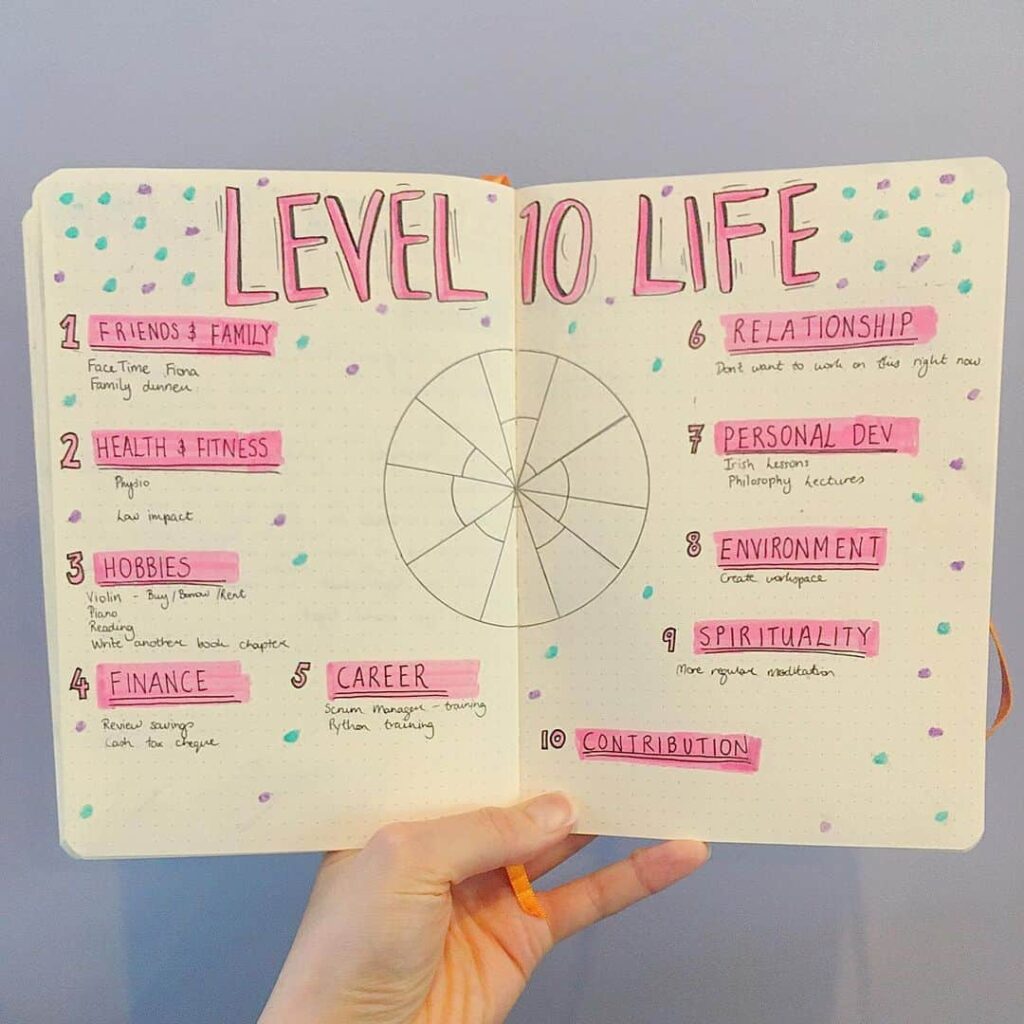 LEVEL 10 LIFE
1 FRIENDS & FAMILY
FaceTime Fiona
Family dinner
2 HEALTH & FITNESS
Physio
Low impact
3 HOBBIES
Violin - Buy/Borrow/Rent
Piano
Reading
Write another book chapter
4 FINANCE
Review savings
Cash tax cheque
5 CAREER
Scrum Manager - training
Python training
6 RELATIONSHIP
Don't want to work on this right now
7 PERSONAL DEV
Irish Lessons
Philosophy Lectures
8 ENVIRONMENT
Create workspace
9 SPIRITUALITY
More regular meditation
10 CONTRIBUTION